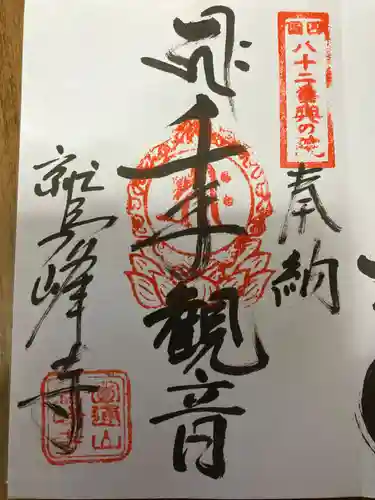 四国
八十二番奥の院
奉納
千手観音
鷲峰寺